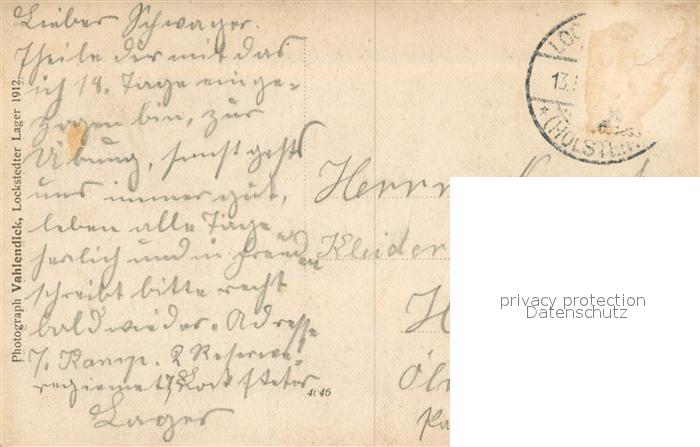 Lieber Schwager.
Theile dir mit das
ich 14. Tage einge-
zogen bin, zur
Übung, sonst gehts
uns immer gut,
leben alle Tage
herlich und in Freuden
schreibt bitte recht
bald wieder. Adresse
7. Komp. 2 Reserve-
regiment, Locksteter
Lager
Photograph Vahlendick, Lockstedter Lager 1912.
4046
LOC
13.
*(HOLSTEIN
Herrn
Kleider
H
privacy protection
Datenschutz